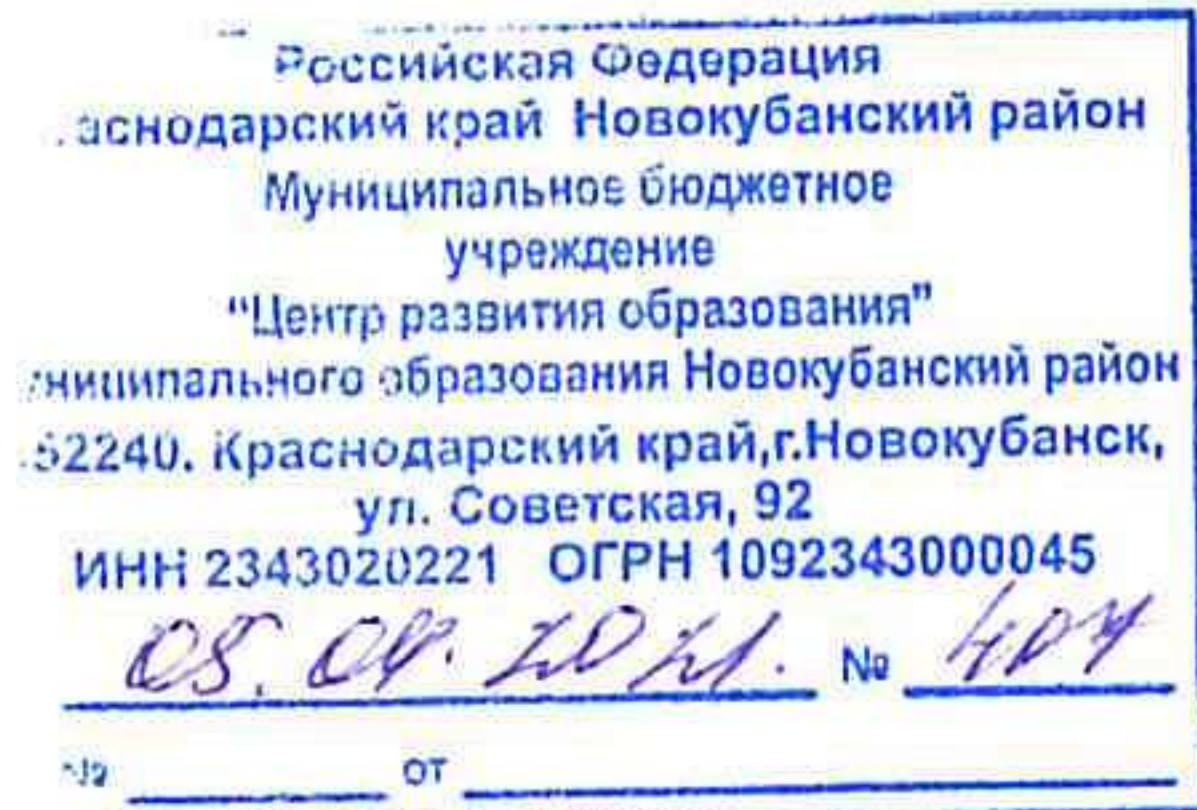 Российская Федерация
аснодарский край Новокубанский район
Муниципальное бюджетное
учреждение
“Центр развития образования”
ниципального образования Новокубанский район
52240. Краснодарский край,г.Новокубанск,
ул. Советская, 92
ИНН 2343020221 ОГРН 1092343000045
№
№ от